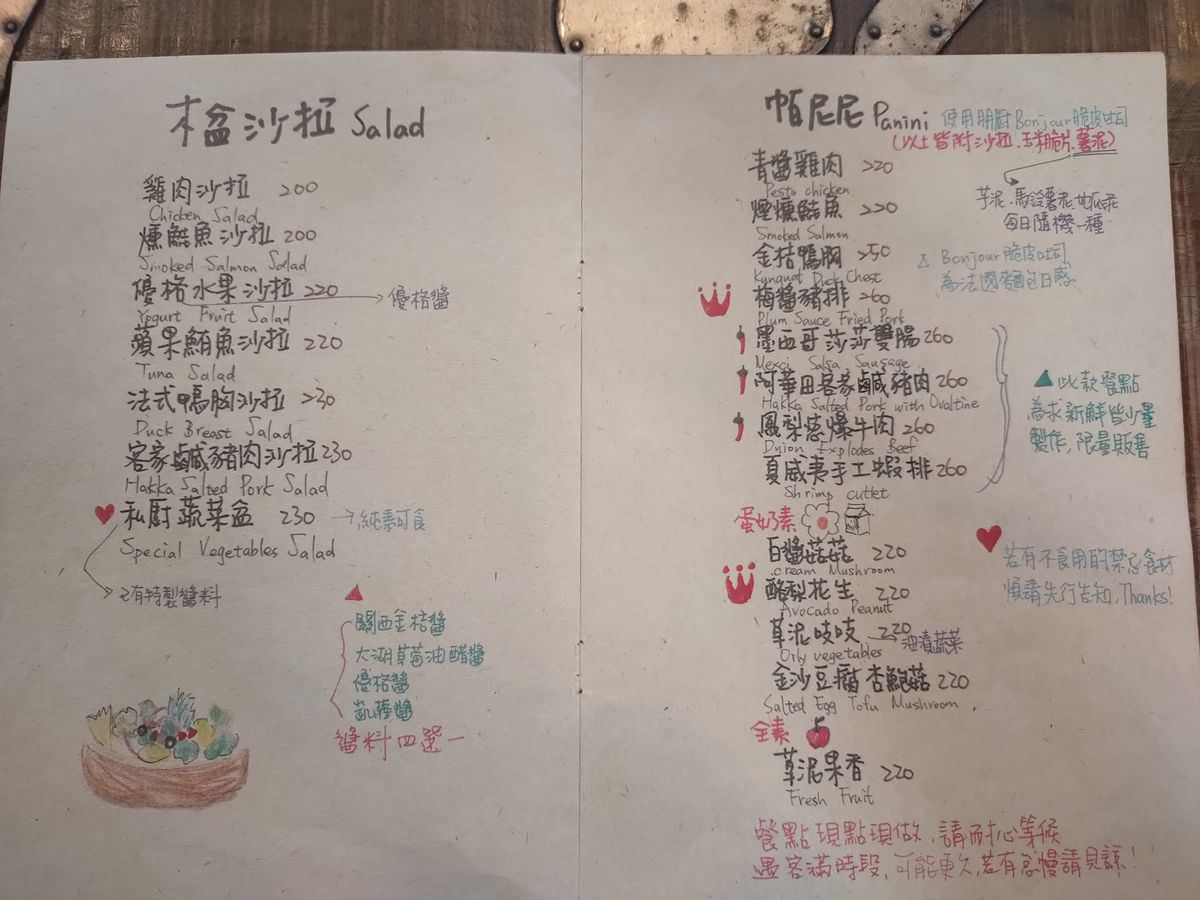 木盆沙拉 Salad
雞肉沙拉 200
Chicken Salad
燻鮭魚沙拉 200
Smoked Salmon Salad
優格水果沙拉 220 → 優格醬
Ypgurt Fruit Salad
蘋果鮪魚沙拉 220
Tuna Salad
法式鴨胸沙拉 230
Duck Breast Salad
客家鹹豬肉沙拉 230
Hakka Salted Pork Salad
私廚蔬菜盆 230 → 純素可食
Special Vegetables Salad
已有特製醬料
關西金桔醬
大湖草莓油醋醬
優格醬
凱薩醬
醬料四選一
帕尼尼 Panini 使用朋廚Bonjour脆皮吐司
(以上皆附沙拉.玉米脆片.薯泥)
芋泥.馬鈴薯泥.地瓜泥
每日隨機一種
青醬雞肉 220
Pesto chicken
煙燻鮭魚 220
Smoked Salmon
金桔鴨胸 250
Kumquat Duck Chest
Bonjour脆皮吐司
為法國麵包口感
梅醬豬排 260
Plum Sauce Fried Pork
墨西哥莎莎雙腸 260
Mexci Salsa Sausage
阿華田客家鹹豬肉 260
Hakka Salted Pork with Ovaltine
鳳梨蔥爆牛肉 260
Onion Explodes Beef
夏威夷手工蝦排 260
Shrimp cutlet
此款餐點
為求新鮮皆少量
製作,限量販售
蛋奶素
白醬菇菇 220
Cream Mushroom
酪梨花生 220
Avocado Peanut
草泥吱吱 220 → 油漬蔬菜
Oily vegetables
金沙豆腐杏鮑菇 220
Salted Egg Tofu Mushroom
若有不食用的禁忌食材
煩請先行告知,Thanks!
全素
草泥果香 220
Fresh Fruit
餐點現點現做,請耐心等候
遇客滿時段,可能更久,若有怠慢請見諒!